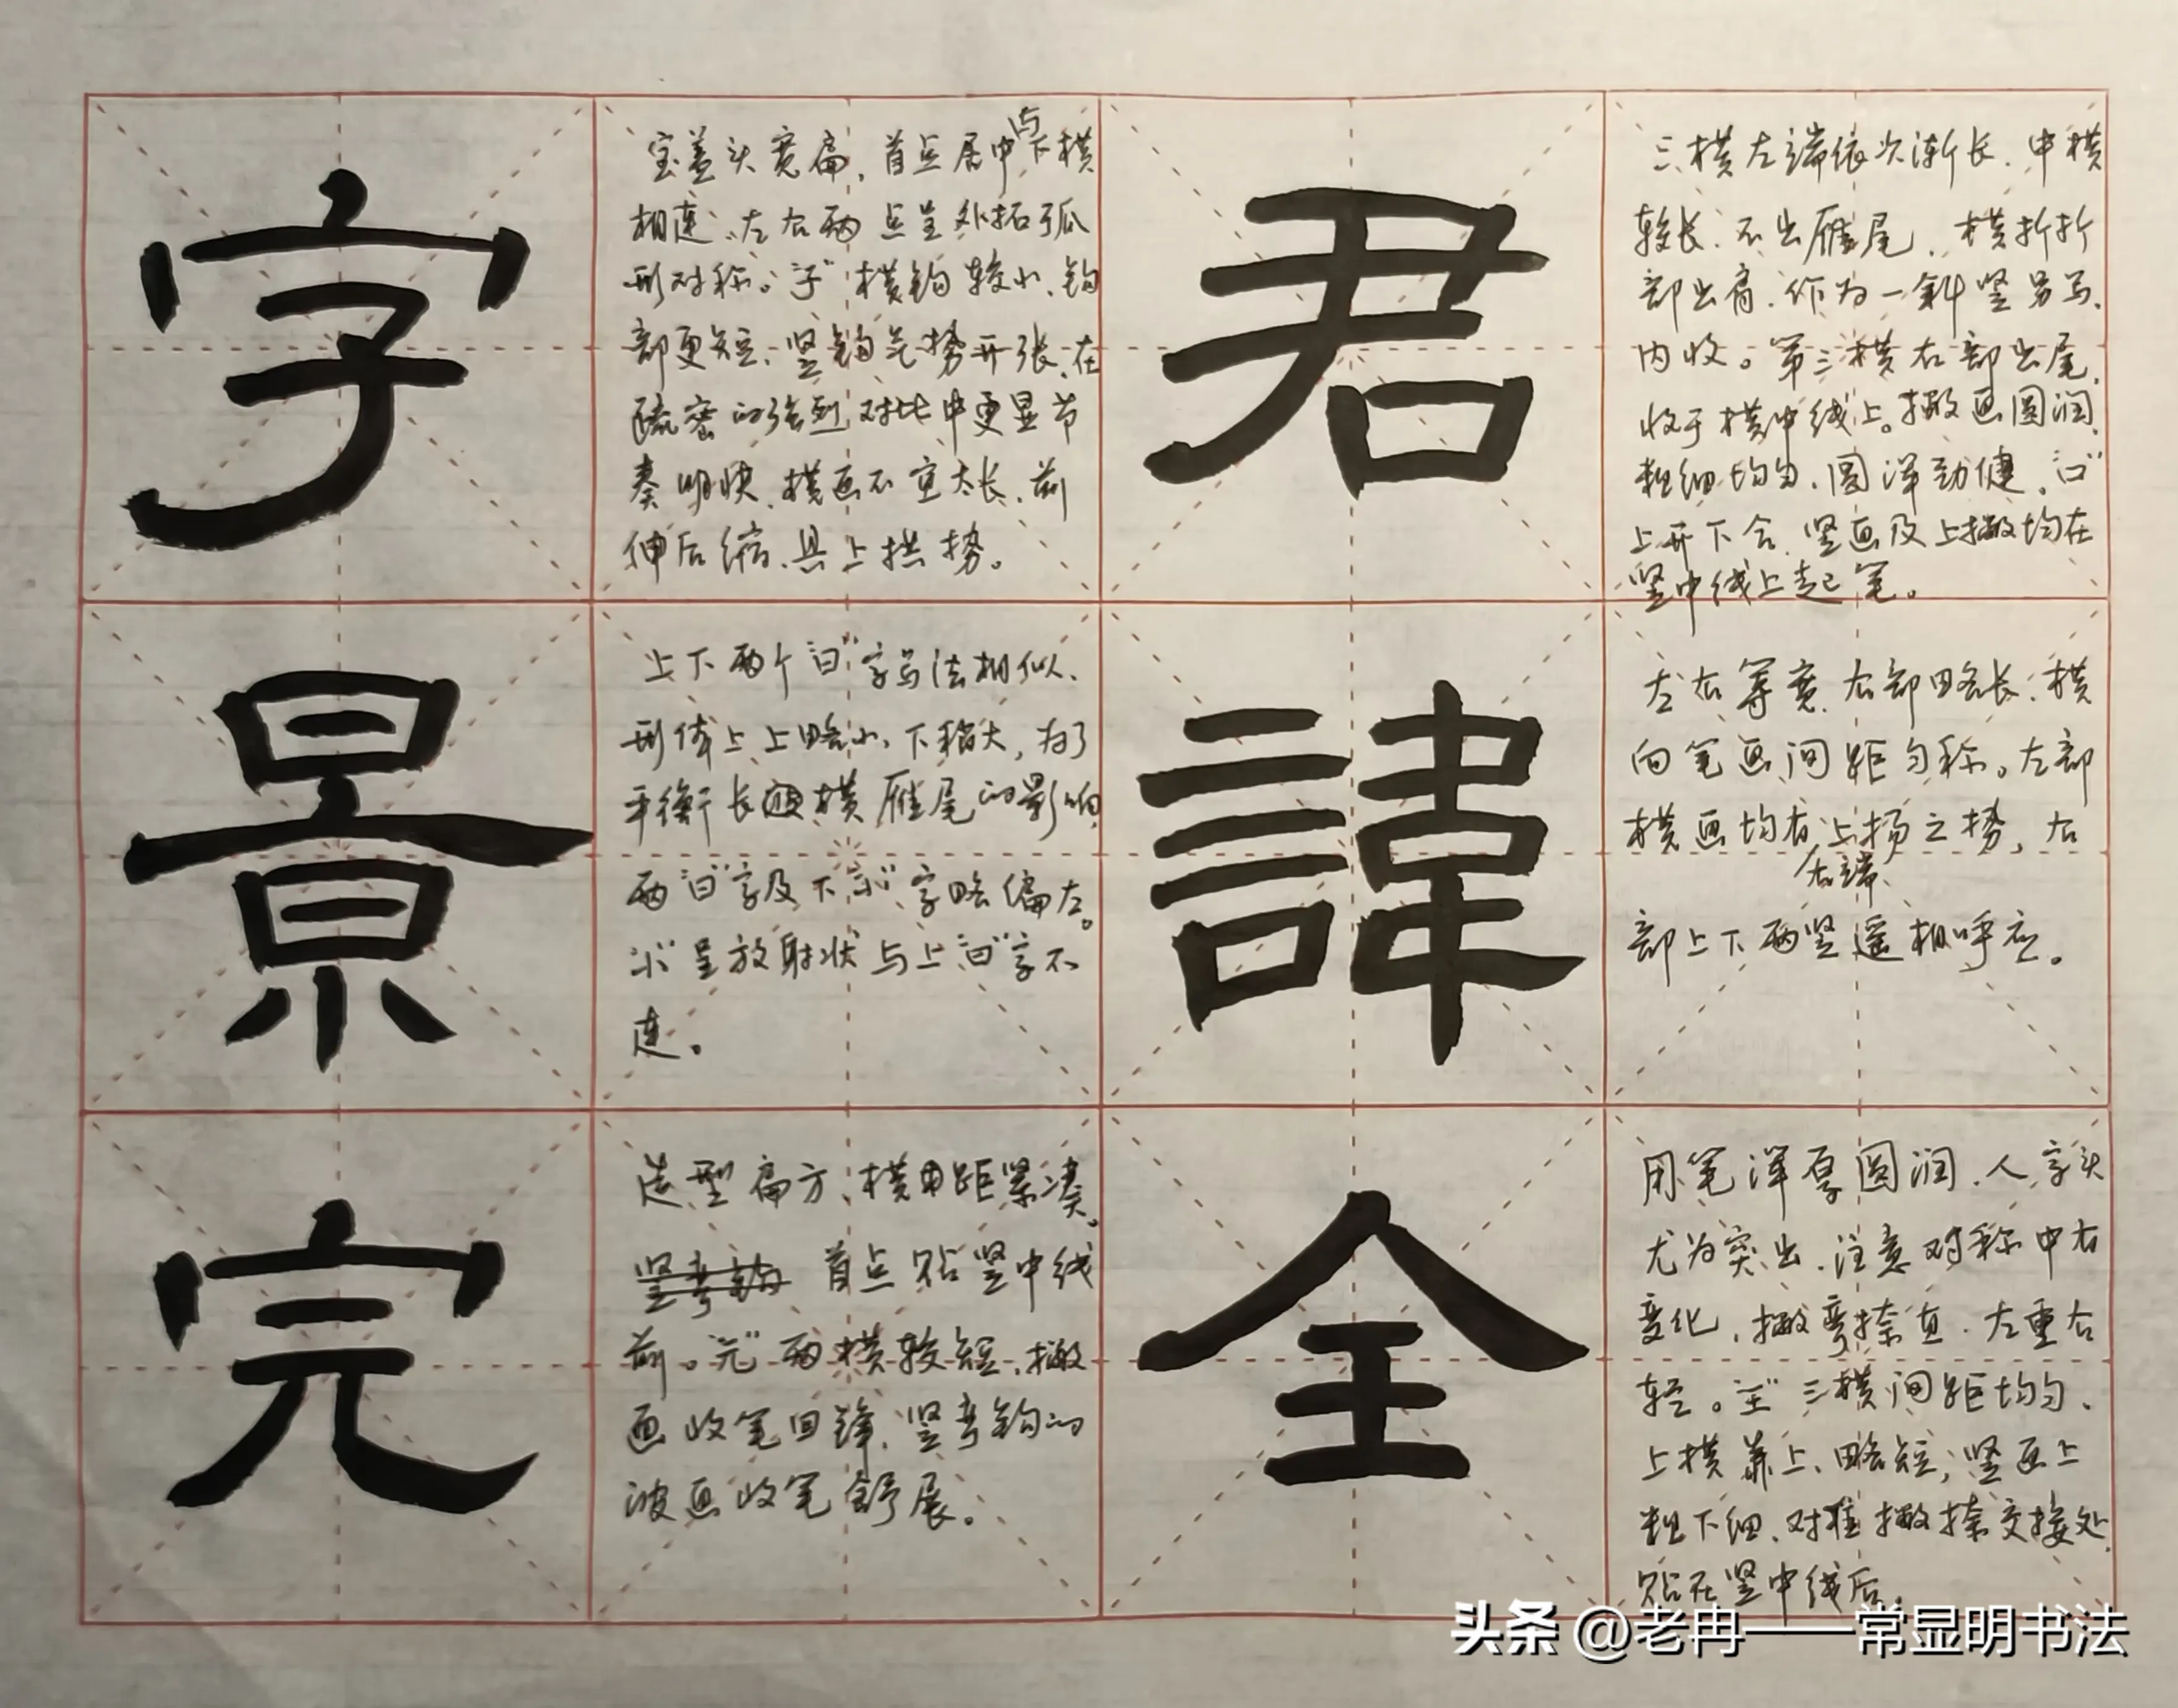 君
三横左端依次渐长、中横
较长、不出雁尾、横折折
部出肩、作为一斜竖另写、
内收。第三横右部出尾、
收于横中线上。撇画圆润、
粗细均匀、圆浑劲健、“口”
上开下合、竖画及上撇均在
竖中线上起笔。
諱
左右等宽、右部略长、横
向笔画间距匀称。左部
横画均有上扬之势，右
右端、
部上下两竖遥相呼应。
全
用笔浑厚圆润、人字头
尤为突出、注意对称中右
变化，撇弯捺直、左重右
轻。“王”三横间距均匀、
上横靠上、略短；竖画上
粗下细、对准撇捺交接处、
贴在竖中线后。
字
宝盖头宽扁，首点居中与下横
相连、左右两点呈外拓弧
形对称。“子”横钩较小、钩
部更短、竖钩气势开张、在
疏密的强烈对比中更显节
奏明快、横画不宜太长、前
伸后缩、具上拱势。
景
上下两个“日”字写法相似、
形体上上略小、下稍大，为了
平衡长横雁尾的影响，
两“日”字及下“小”字略偏左。
“小”呈放射状与上“日”字不
连。
完
造型扁方、横距紧凑。
竖弯钩 首点贴竖中线
前。“元”两横较短、撇
画收笔回锋、竖弯钩的
波画收笔舒展。
头条 @老冉——常显明书法